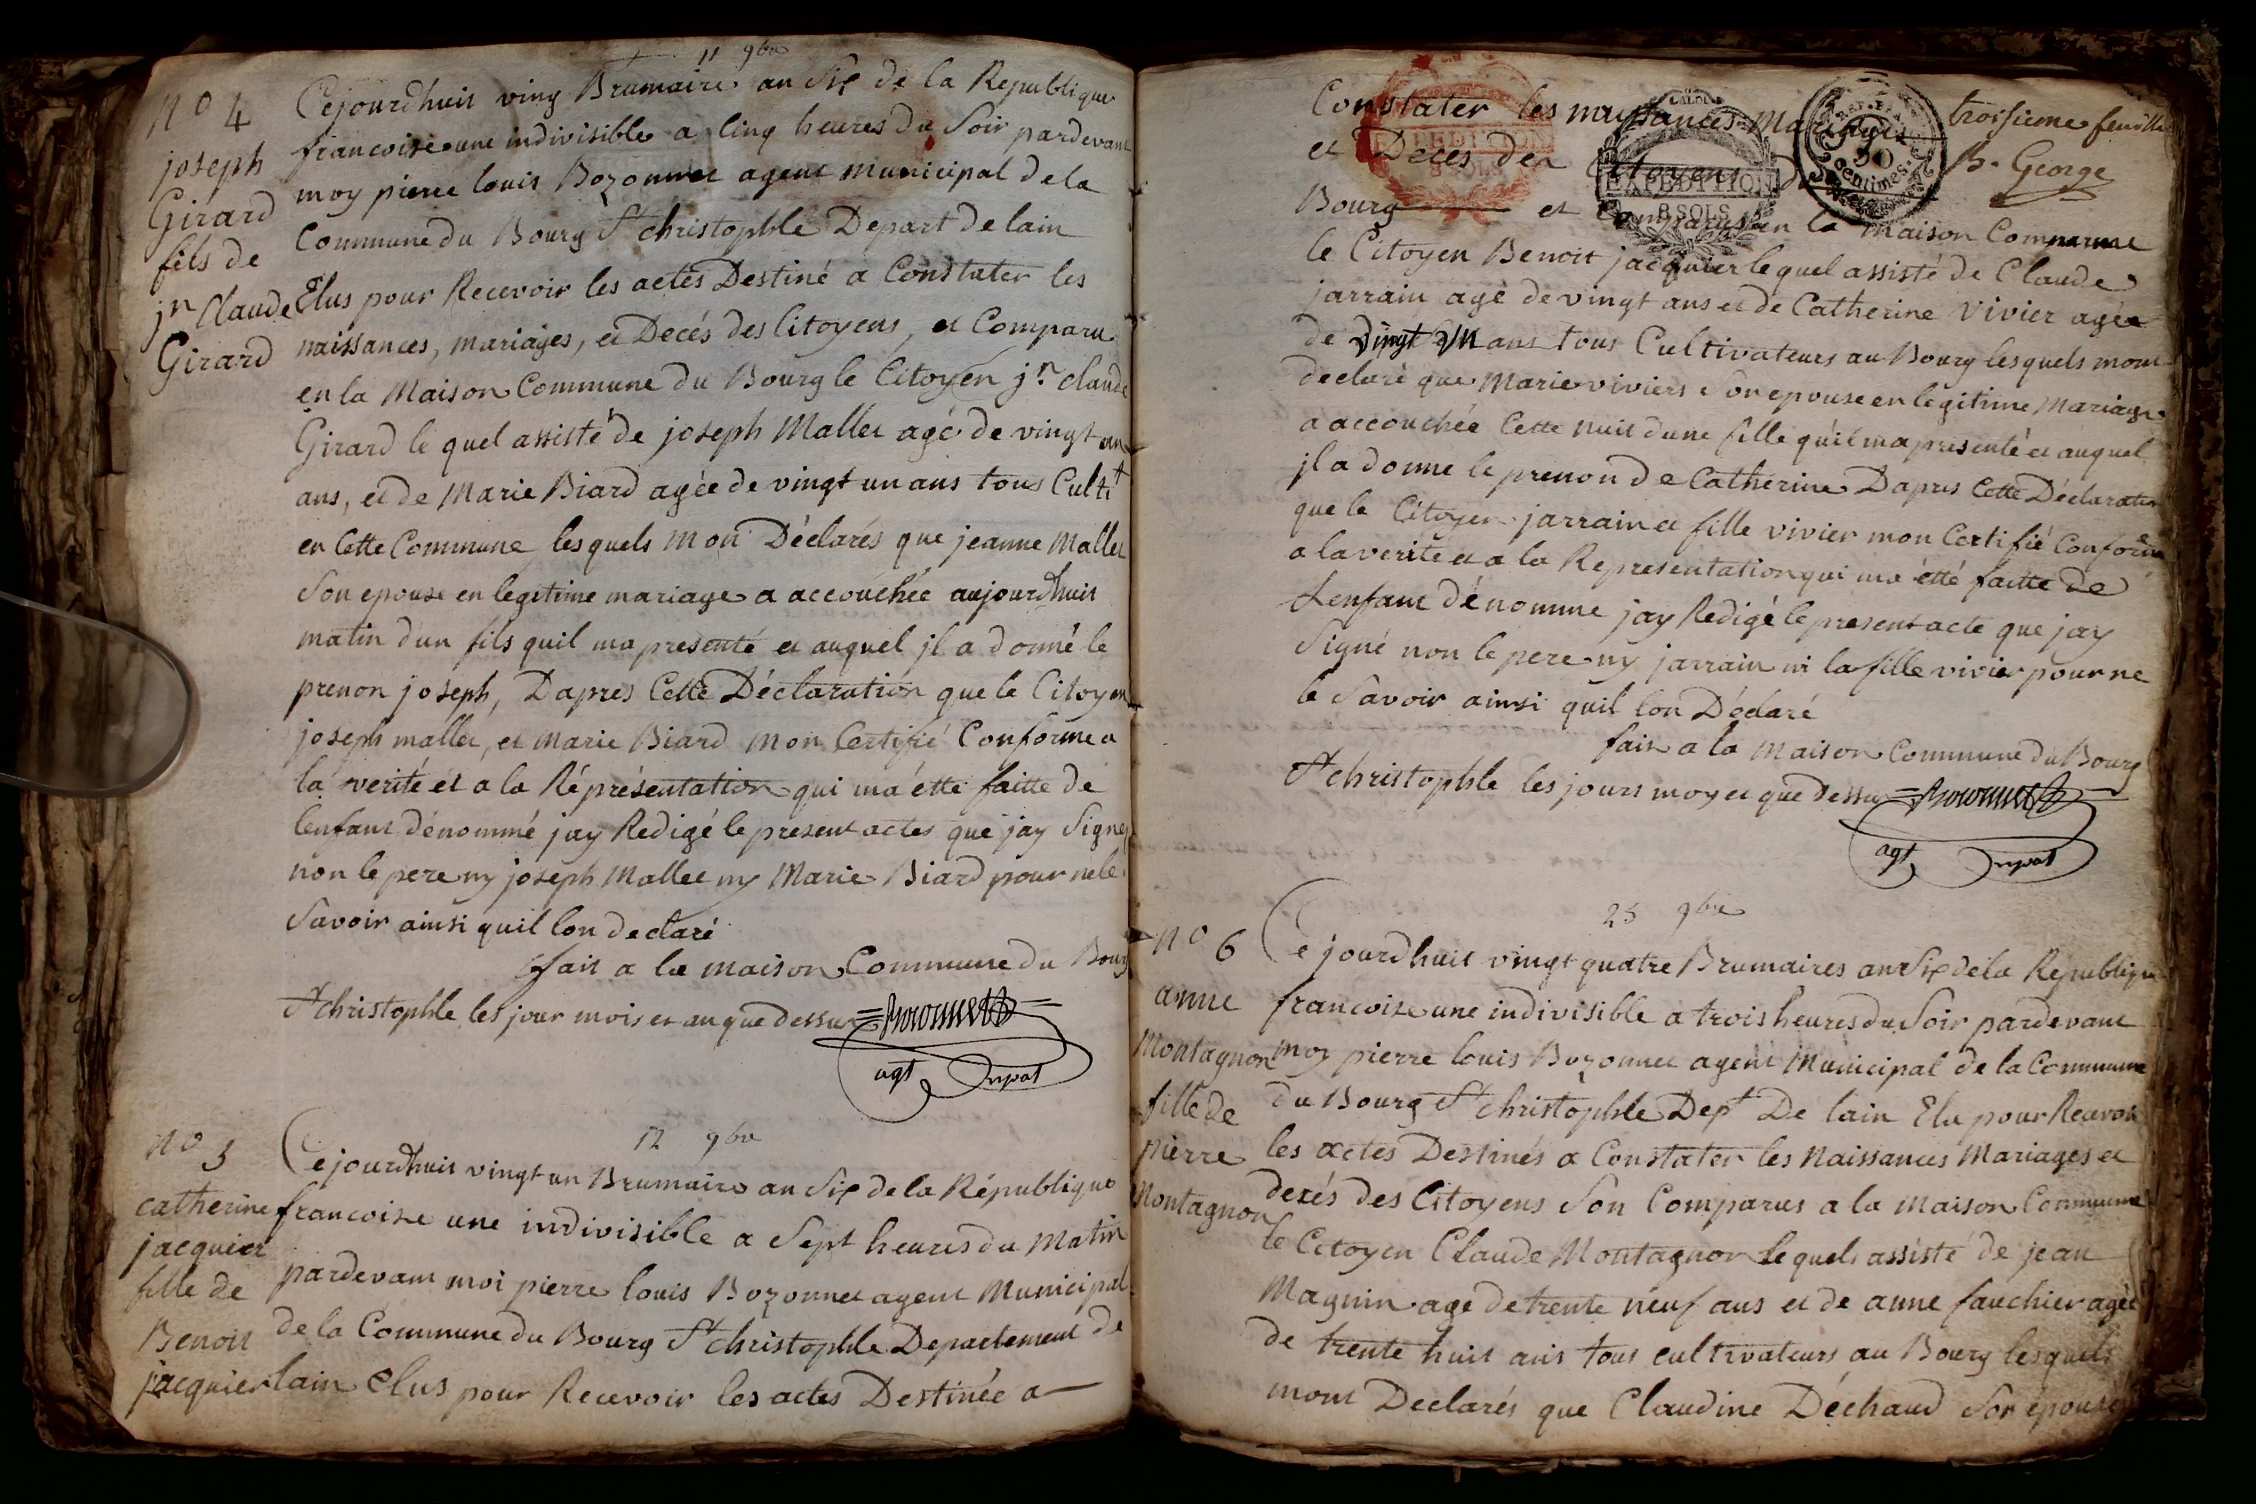 11 9bre
n° 4
joseph
Girard
fils de
jn Claude
Girard
Cejourdhuit ving Brumaire an Six de la Republique
francoise une indivisible a Cinq heures du Soir pardevant
moy pierre louis Bozonnet agent municipal de la
Commune du Bourg St christophle Depart de lain
Elus pour Recevoir les actes Destiné a Constater les
naissances, mariages, et Decés des Citoyens, et Comparu
en la Maison Commune du Bourg le Citoyen jn claude
Girard le quel assisté de joseph Mallet agé de vingt un
ans, et de Marie Biard agée de vingt un ans tous Cultt
en Cette Commune lesquels mon Déclarés que jeanne Mallet
Son epouse en legitime mariage a accouchée aujourdhuit
matin dun fils quil ma presenté et auquel jl a donné le
prenon joseph, Dapres Cette Déclaration que le Citoyen
joseph mallet, et Marie Biard mon Certifié Conforme a
la verité et a la Réprésentation qui ma étté faitte de
lenfant dénommé jay Redigé le present actes que jay Signé
non le pere ny joseph Mallet ny Marie Biard pour ne le
Savoir ainsi quil lon declaré
fait a la maison Commune du Bourg
St christophle les jour mois et an que dessus Bozonnet
agt mpal
12 9bre
n° 5
catherine
jacquier
fille de
Benoit
jacquier
Cejourdhuit vingt un Brumaire an Six de la République
francoise une indivisible a Sept heures du Matin
pardevant moi pierre louis Bozonnet agent Municipal
de la Commune du Bourg St christophle Departement de
lain Elus pour Recevoir les actes Destinée a
troisieme feuille
B. George
Constater les naissances Mariages
et Deces des Citoyens du
Bourg et Comparus en la Maison Commune
le Citoyen Benoit jacquier le quel assisté de Claude
jarrain agé de vingt ans et de Catherine Vivier agée
de vingt un ans tous Cultivateurs au Bourg lesquels mont
declaré que Marie viviers Son epouse en legitime Mariage
a accouchée Cette nuit dune fille quil ma presenté et auquel
jl a donne le prenon de Catherine Dapres Cette Déclaration
que le Citoyen jarrain et fille vivier mon Certifié Conforme
a la verite et a la Representation qui ma étté faitte de
Lenfant dénomme jay Redigé le present acte que jay
Signé non le pere ny jarrain ni la fille vivier pour ne
le Savoir ainsi quil lon Déclaré
fait a la maison Commune du Bourg
St christophle les jours moy et que dessus Bozonnet
agt mpal
EXPEDITION
8 SOLS
EXPEDITION
8 SOLS
50
Centimes
25 9bre
n° 6
anne
Montagnon
fille de
pierre
Montagnon
Ce jourdhuit vingt quatre Brumaires an Six de la Republique
francoise une indivisible a trois heures du Soir pardevant
moy pierre louis Bozonnet agent Municipal de la Commune
du Bourg St christophle Dept De lain Elu pour Recevoir
les actes Destinés a Constater les Naissances Mariages et
decés des Citoyens Son Comparus a la Maison Commune
le Citoyen Claude Montagnon lequels assisté de jean
Magnin age de trente neuf ans et de anne fauchier agée
de trente huit ans tous cultivateurs au Bourg lesquels
mont Declarés que Claudine Déchaud Son épouse